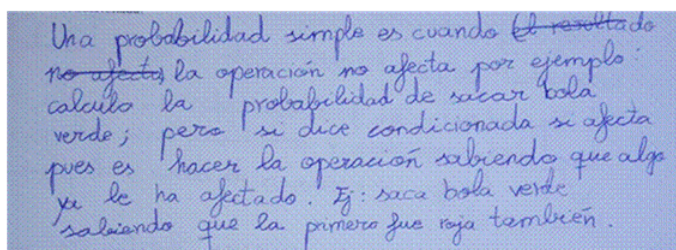 Una probabilidad simple es cuando el resultado
no afecta, la operación no afecta por ejemplo:
calculo la probabilidad de sacar bola
verde; pero si dice condicionada si afecta
pues es hacer la operación sabiendo que algo
ya le ha afectado. Ej: saca bola verde
sabiendo que la primera fue roja también.